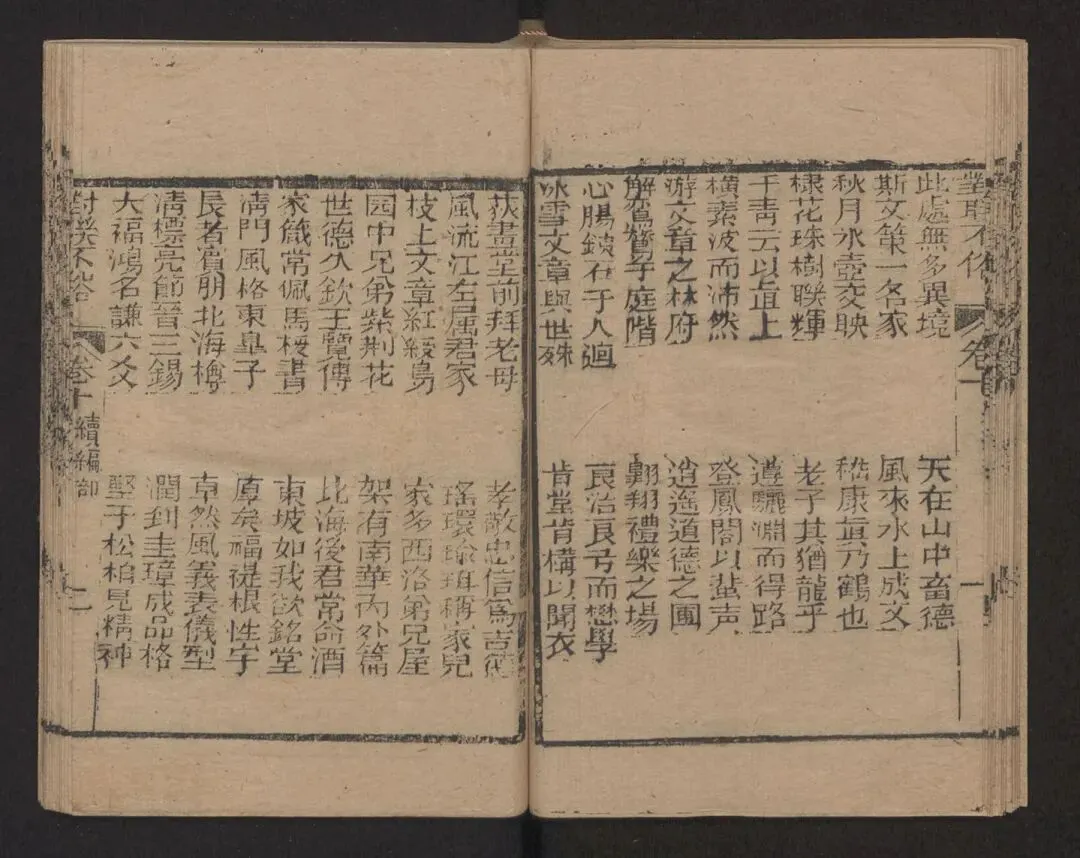 對聯不俗
卷十
一
此處無多異境
天在山中畜德
斯文第一名家
風來水上成文
秋月水壺交映
嵇康真乃鶴也
棣花珠樹聯輝
老子其猶龍乎
干青云以直上
遵驪淵而得路
橫素波而沛然
登鳳閣以蜚声
游文章之林府
逍遙道德之圃
解鴛鴦于庭階
翱翔禮樂之場
心腸鐵石于人迴
良治良弓而懋學
冰雪文章與世殊
肯堂肯構以聞衣
荻畫堂前拜老母
孝敬忠信為吉德
風流江左屬君家
瑤環瑜珥稱家兒
枝上文章紅綬鳥
家多西洛弟兄屋
园中兄弟紫荆花
架有南華內外篇
世德久欽王覽傳
北海後君常命酒
家箴常佩馬援書
東坡如我欲銘堂
清門風格東皐子
厚矣福禔根性字
長者賓朋北海樽
卓然風義表儀型
清標亮節晉三錫
潤到圭璋成品格
大福鴻名謙六爻
堅于松柏見精神
對聯不俗
卷十
續編部
二